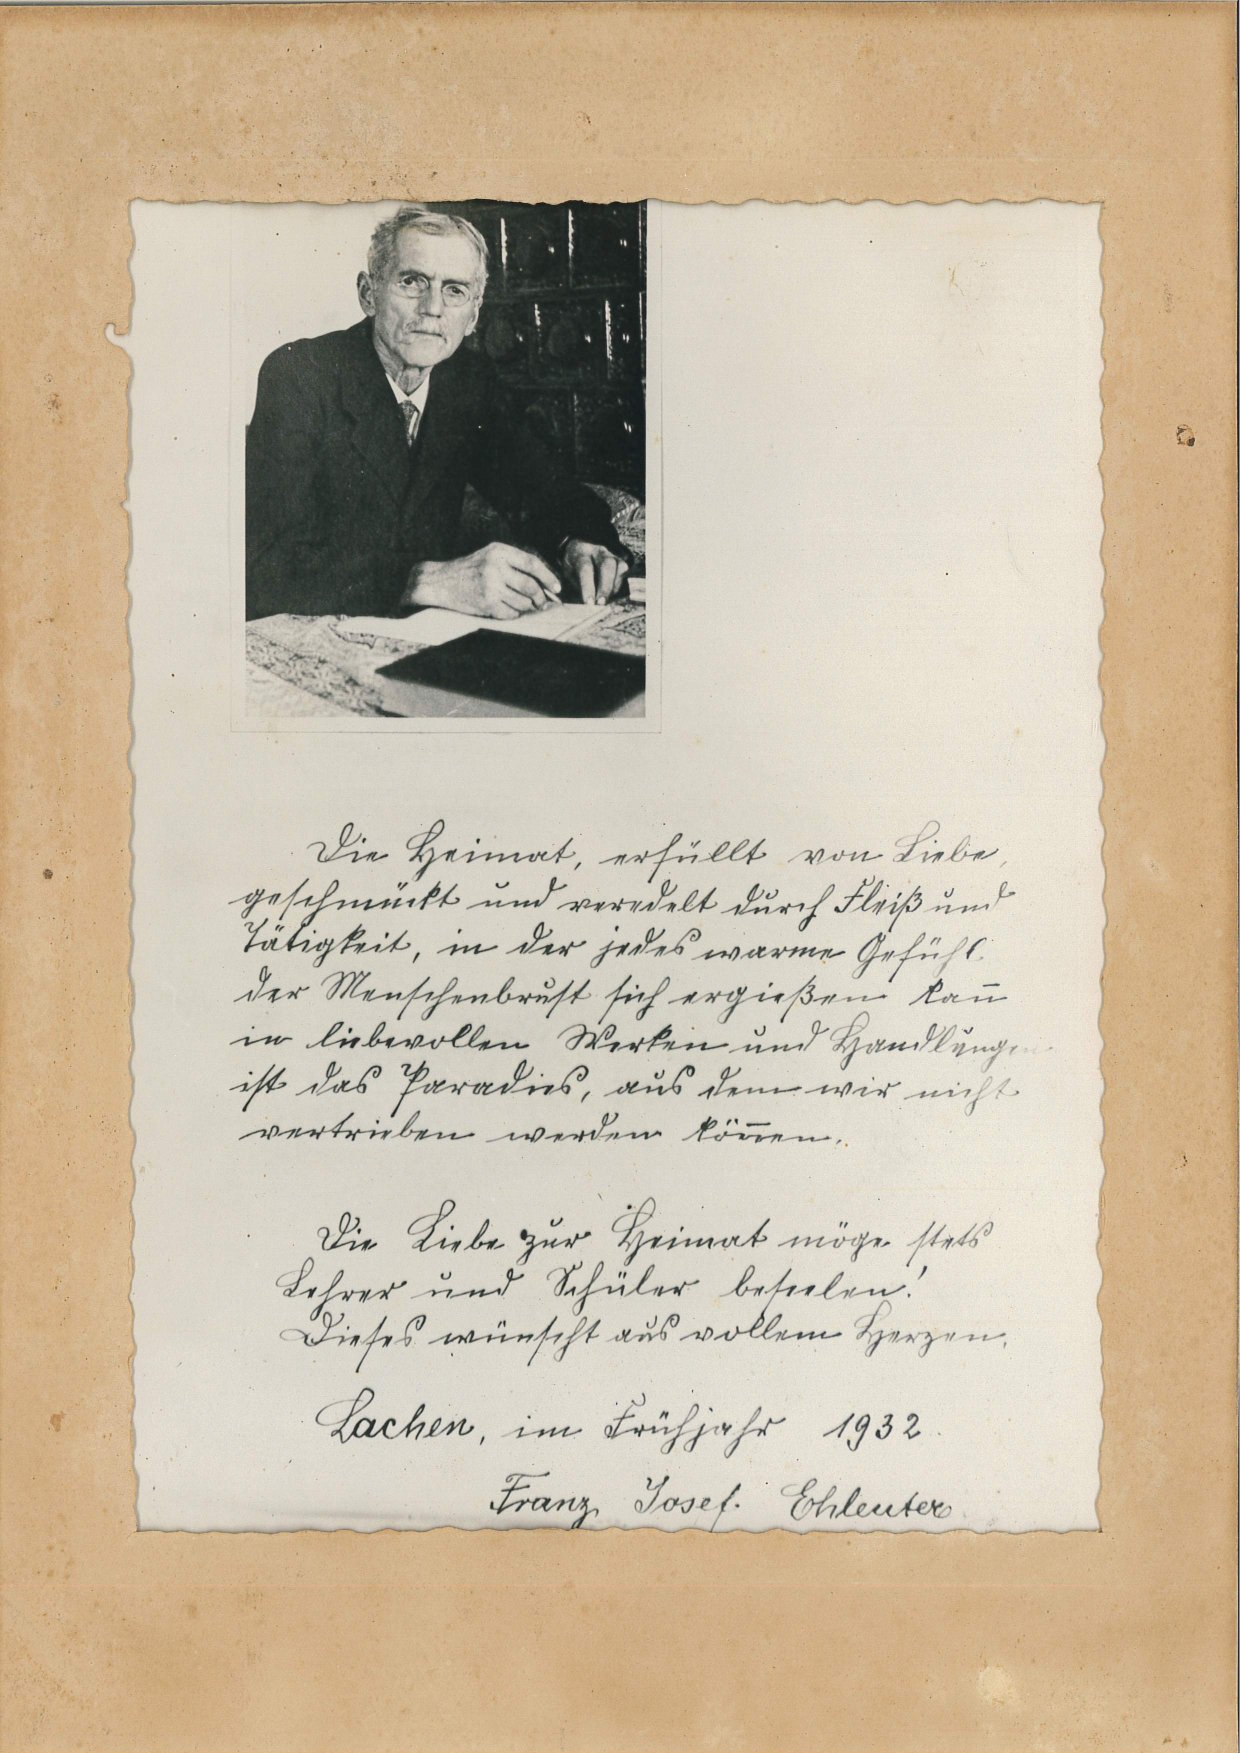 Die Heimat, erfüllt von Liebe,
geschmückt und veredelt durch Fleiß und
Tätigkeit, in der jedes warme Gefühl
der Menschenbrust sich ergießen kan̄
in liebevollen Werken und Handlungen
ist das Paradies, aus dem wir nicht
vertrieben werden kön̄en.
Die Liebe zur Heimat möge stets
Lehrer und Schüler beseelen!
Dieses wünscht aus vollem Herzen.
Lachen, im Frühjahr 1932.
Franz Josef. Ehleuter